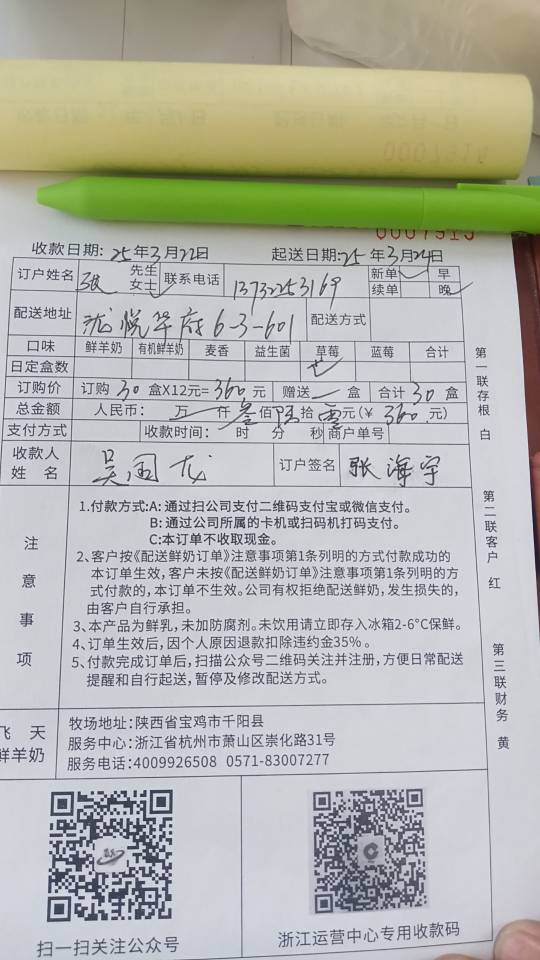 0007914
0007913
收款日期: 25 年 3 月 22 日 起送日期: 25 年 3 月 24 日
订户姓名 张 先生 女士 联系电话 13732253169 新单 早 续单 晚
配送地址 悦华府 6-3-601 配送方式
口味 鲜羊奶 有机鲜羊奶 麦香 益生菌 草莓 蓝莓 合计
日定盒数
订购价 订购 30 盒X12元= 360 元 赠送 盒 合计 30 盒
总金额 人民币: 万 仟 叁 佰 陆 拾 零 元(¥ 360 元)
支付方式 收款时间: 时 分 秒 商户单号
收款人姓名 吴国龙 订户签名 张海宇
注意事项
1.付款方式:A: 通过扫公司支付二维码支付宝或微信支付。
B: 通过公司所属的卡机或扫码机打码支付。
C:本订单不收取现金。
2、客户按《配送鲜奶订单》注意事项第1条列明的方式付款成功的
本订单生效，客户未按《配送鲜奶订单》注意事项第1条列明的方
式付款的，本订单不生效。公司有权拒绝配送鲜奶，发生损失的，
由客户自行承担。
3、本产品为鲜乳，未加防腐剂。未饮用请立即存入冰箱2-6°C保鲜。
4、订单生效后，因个人原因退款扣除违约金35%。
5、付款完成订单后，扫描公众号二维码关注并注册，方便日常配送
提醒和自行起送，暂停及修改配送方式。
飞天
鲜羊奶
牧场地址: 陕西省宝鸡市千阳县
服务中心: 浙江省杭州市萧山区崇化路31号
服务电话: 4009926508 0571-83007277
扫一扫关注公众号
浙江运营中心专用收款码
第一联存根 白
第二联客户 红
第三联财务 黄